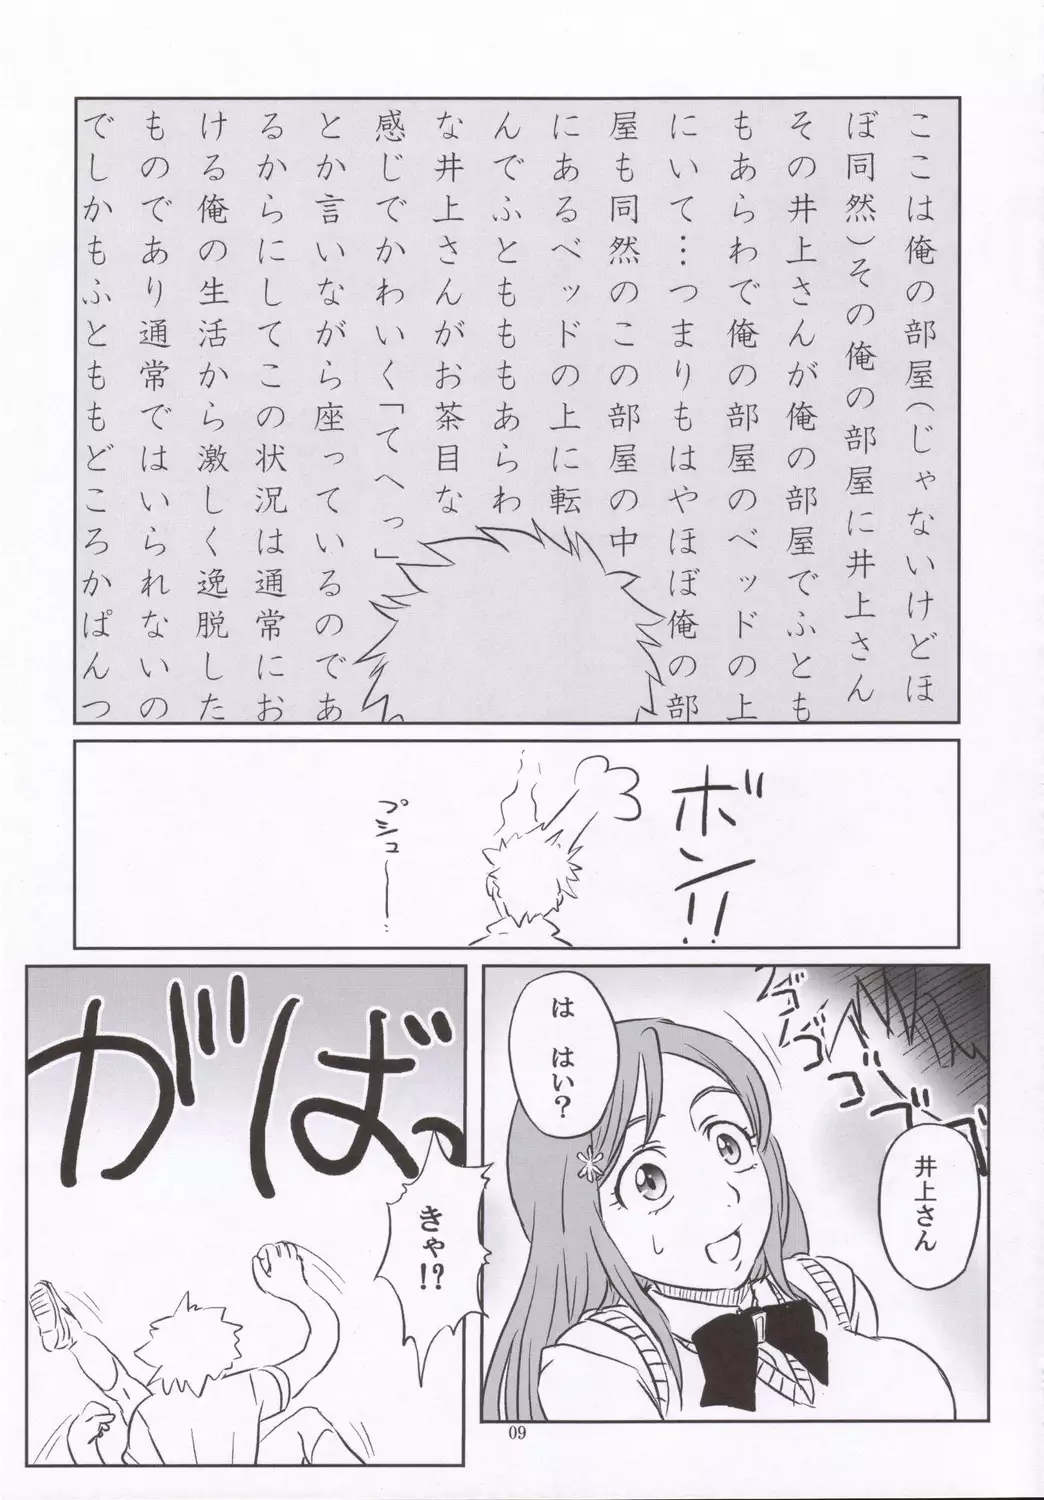 ここは俺の部屋(じゃないけどほ
ぼ同然)その俺の部屋に井上さん
その井上さんが俺の部屋でふとも
もあらわで俺の部屋のベッドの上
にいて…つまりもはやほぼ俺の部
屋も同然のこの部屋の中
にあるベッドの上に転
んでふとももあらわ
な井上さんがお茶目な
感じでかわいく「てへっ」
とか言いながら座っているのであ
るからにしてこの状況は通常にお
ける俺の生活から激しく逸脱した
ものであり通常ではいられないの
でしかもふとももどころかぱんつ
ボン!!
プシューー…
ズズズズズズ
井上さん
は はい?
がばっ
きゃ!?
09